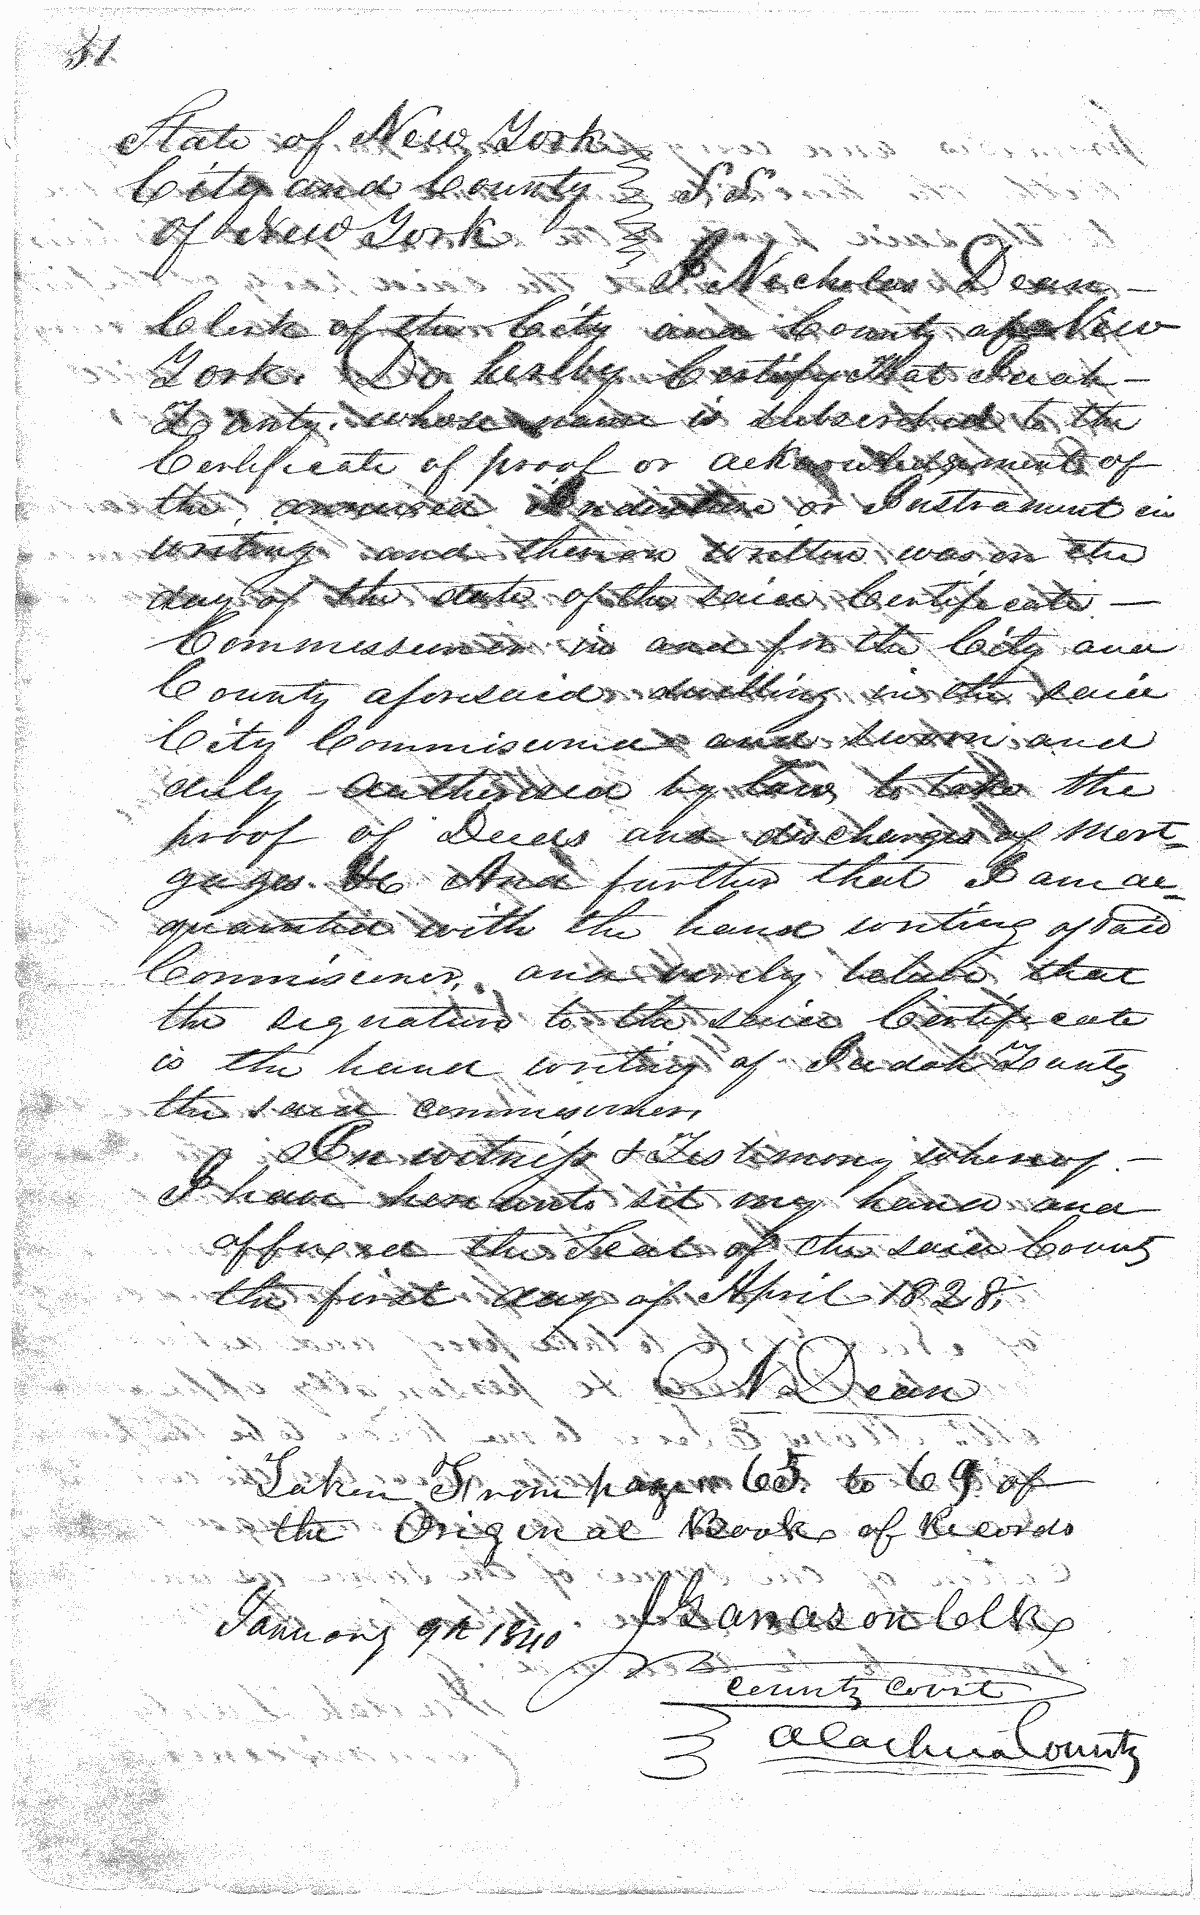 51
State of New York
City and County S.S.
of New York
I Nicholas Dean —
Clerk of the City and County of New
York. Do hereby Certify That Judah —
Zuntz. whose name is subscribed to the
Certificate of proof or acknowledgement of
the annexed Indenture or Instrument in
writing and thereon written was on the
day of the date of the said Certificate —
Commissioner in and for the City and
County aforesaid dwelling in the said
City Commissioned and sworn and
duly Authorised by law, to take the
proof of Deeds and discharges of Mort-
gages. &c And further that I am ac-
quainted with the hand writing of said
Commisioner, and verily beleive that
the signature to the said Certificate
is the hand writing of Judah Zuntz
the said commisioner,
In witness & Testimony whereof —
I have hereunto set my hand and
affixed the Seal of the said County
the first day of April 1828,
N Dean
Taken From pages 65. to 69 of
the Original Book of Records
January 9th 1840 Clk
County Court
Alachua County